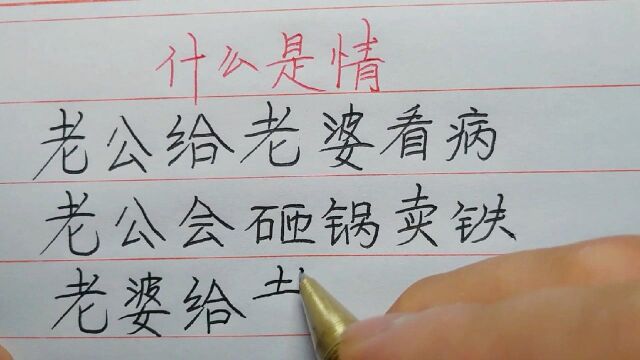 什么是情
老公给老婆看病
老公会砸锅卖铁
老婆给